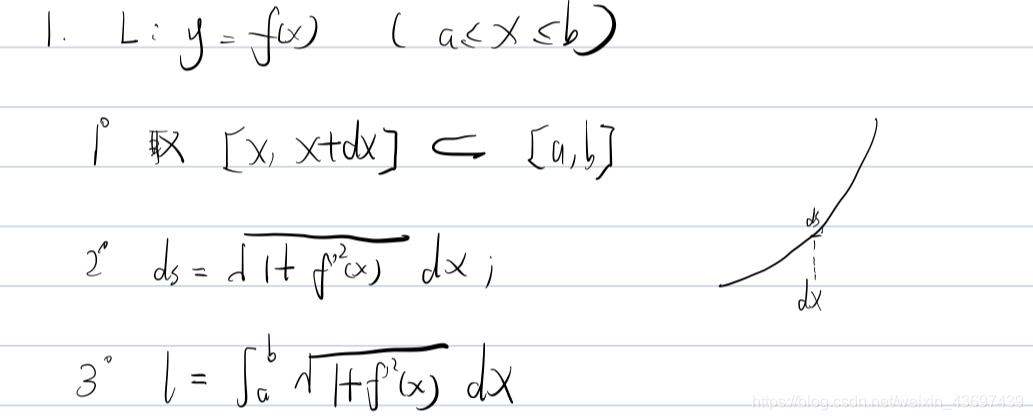 1. L: y = f(x) (a ≤ x ≤ b)
1° 取 [x, x+dx] ⊂ [a,b]
2° ds = √(1+f'²(x)) dx ;
3° l = ∫ₐᵇ √(1+f'²(x)) dx
ds
dx
https://blog.csdn.net/weixin_43697439